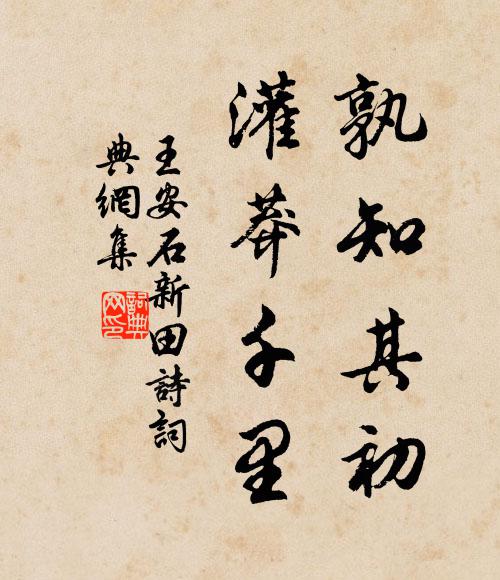 孰知其初
灌莽千里
王安石新田詩詞
典網集
詞典网印